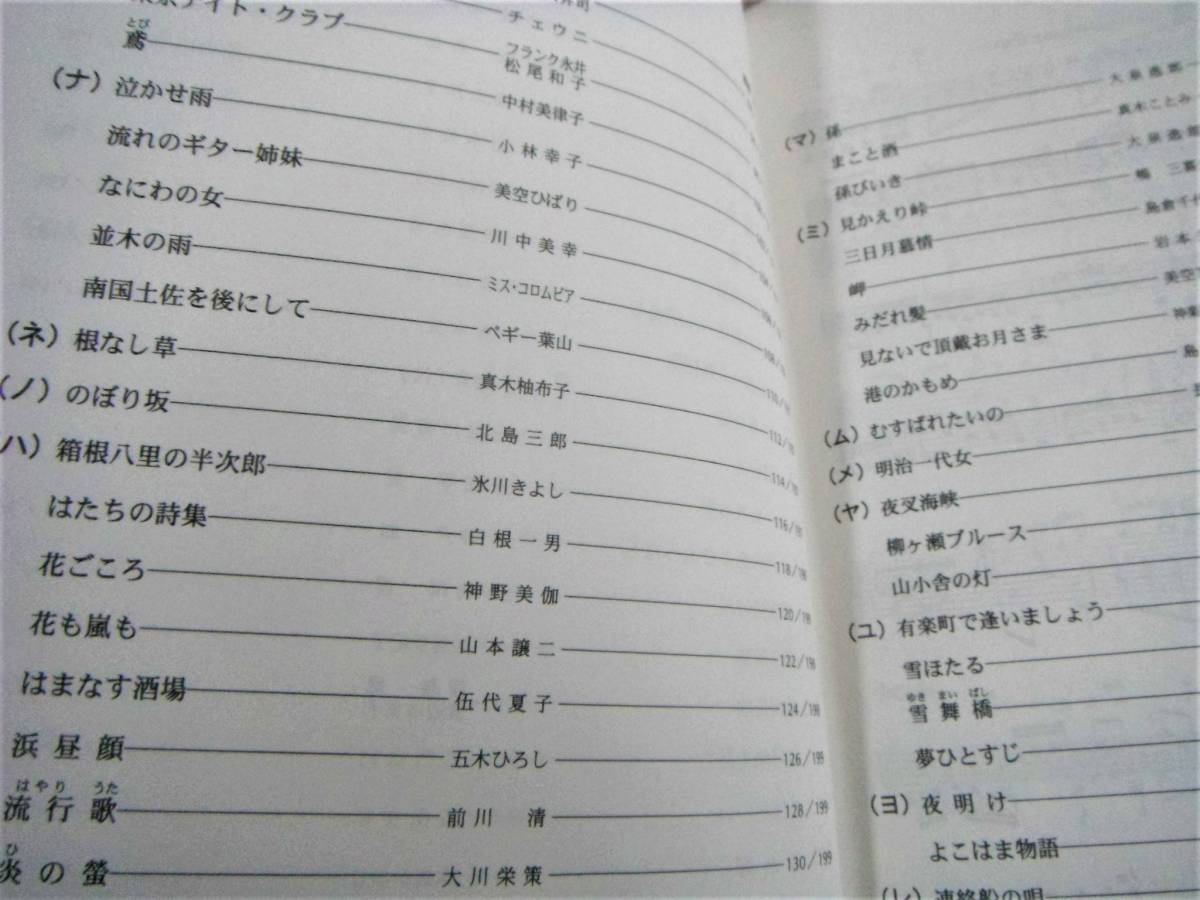 ナイト・クラブ フランク永井 松尾和子
チェウニ
鳶 とび 中村美律子
(ナ) 泣かせ雨 小林幸子
流れのギター姉妹 美空ひばり
なにわの女 川中美幸
並木の雨 ミス・コロムビア
南国土佐を後にして ペギー葉山
(ネ) 根なし草 真木柚布子 112/
(ノ) のぼり坂 北島三郎 114/
ハ) 箱根八里の半次郎 氷川きよし 116/
はたちの詩集 白根一男 118/
花ごころ 神野美伽 120/199
花も嵐も 山本譲二 122/199
はまなす酒場 伍代夏子 124/199
浜昼顔 五木ひろし 126/199
流行歌 はやり うた 前川 清 128/199
炎の螢 ひ 大川栄策 130/199
(マ) 孫 大泉逸郎
まこと酒 真木ことみ
孫びいき 大泉逸郎
(ミ) 見かえり峠
三日月慕情 島倉千代
岬 岩本
みだれ髪 美空
見ないで頂戴お月さま 神楽
港のかもめ 島
(ム) むすばれたいの
(メ) 明治一代女
(ヤ) 夜叉海峡
柳ヶ瀬ブルース
山小舎の灯
(ユ) 有楽町で逢いましょう
雪ほたる
雪舞橋 ゆき まい ばし
夢ひとすじ
(ヨ) 夜明け
よこはま物語
(レ) 連絡船の唄